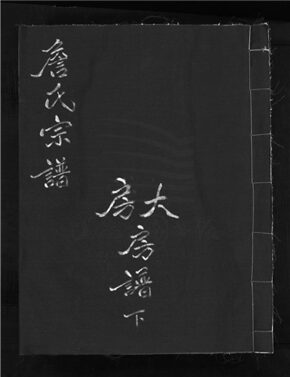 詹氏宗譜
大房
房譜
下